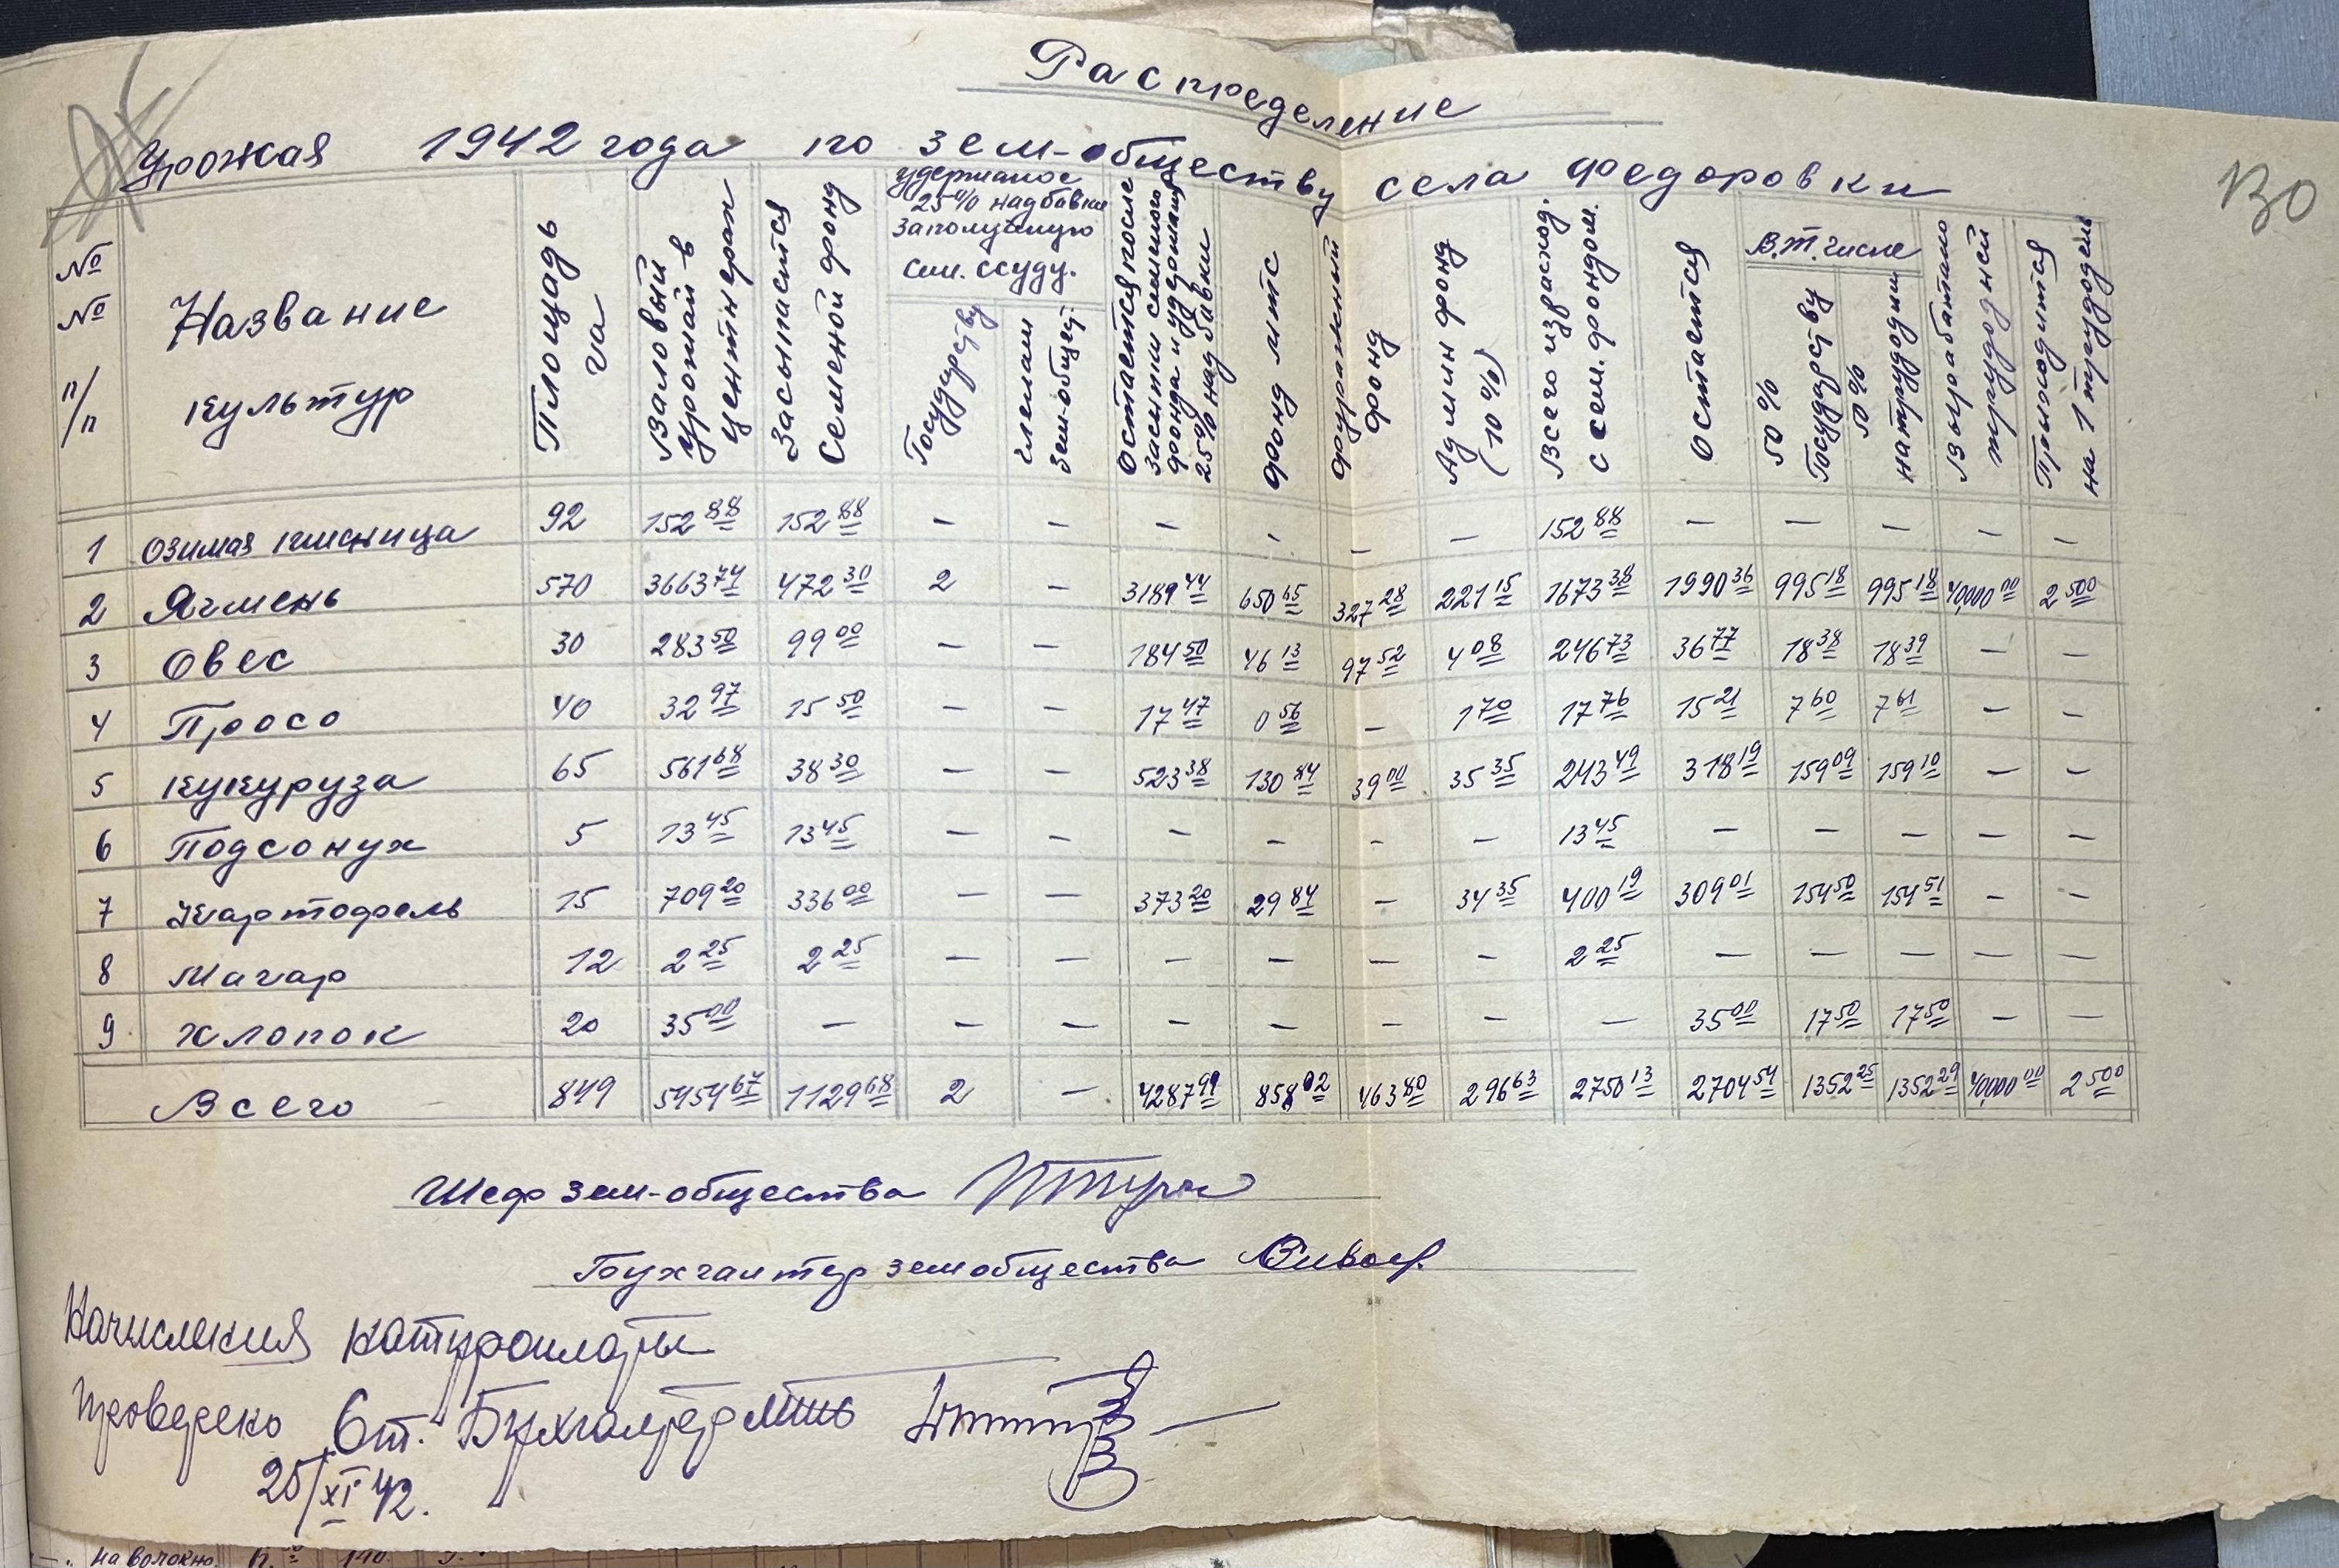 Распределение
Урожая 1942 года по зем-обществу села Федоровки
130
№ № п/п | Название культур | Площадь га | Валовый урожай в центнерах | Засыпается семеной фонд | удержаное 25% надбавки заполученую сем. ссуду. Государству | членам зем-общест. | Остается после засыпки семенного фонда и удержания 25% надбавки | фонд мтс | фуражный фонд | Админ фонд (10%) | Всего израсход. с сем. фондом. | остается | В.т. числе 50% Государству | 50% натрудодни | Выработано трудодней | Приходится на 1 трудодень
1 | озимая пшеница | 92 | 152 88 | 152 88 | — | — | — | - | — | — | 152 88 | — | — | — | — | —
2 | Ячмень | 570 | 3663 74 | 472 30 | 2 | — | 3189 44 | 650 65 | 327 28 | 221 15 | 1673 38 | 1990 36 | 995 18 | 995 18 | 40,000 00 | 2 500
3 | Овес | 30 | 283 50 | 99 00 | — | — | 184 50 | 46 13 | 97 52 | 4 08 | 246 73 | 36 77 | 18 38 | 18 39 | — | —
4 | Просо | 40 | 32 97 | 15 50 | — | — | 17 47 | 0 56 | — | 1 70 | 17 76 | 15 21 | 7 60 | 7 61 | — | —
5 | кукуруза | 65 | 561 68 | 38 30 | — | — | 523 38 | 130 84 | 39 00 | 35 35 | 243 49 | 318 19 | 159 09 | 159 10 | — | —
6 | Подсонух | 5 | 13 45 | 13 45 | — | — | — | — | — | — | 13 45 | — | — | — | — | —
7 | Картофель | 15 | 709 20 | 336 00 | — | — | 373 20 | 29 84 | — | 34 35 | 400 19 | 309 01 | 154 50 | 154 51 | — | —
8 | Магар | 12 | 2 25 | 2 25 | — | — | — | — | — | — | 2 25 | — | — | — | — | —
9 | Хлопок | 20 | 35 00 | — | — | — | — | — | — | — | — | 35 00 | 17 50 | 17 50 | — | —
Всего | 849 | 5454 67 | 1129 68 | 2 | — | 4287 99 | 858 02 | 463 80 | 296 63 | 2750 13 | 2704 54 | 1352 25 | 1352 29 | 40,000 00 | 2 500
Шеф зем-общества
Бухгалтер земобщества
Начисления натуроплаты
проверено Ст. Бухгалтер мтс
25/XI 42.